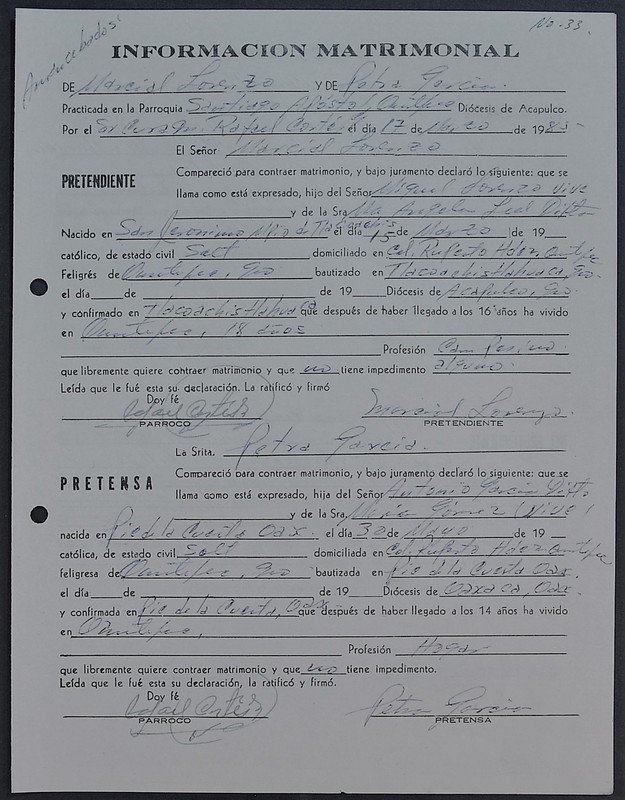 No. 33.
Amancebados
INFORMACION MATRIMONIAL
DE Marcial Lorenzo Y DE Petra García.
Practicada en la Parroquia Santiago Apóstol, Diócesis de Acapulco.
Por el Sr. Cura Rafael Cortés el día 17 de Marzo de 1985-
El Señor Marcial Lorenzo
Compareció para contraer matrimonio, y bajo juramento declaró lo siguiente: que se
PRETENDIENTE
llama como está expresado, hijo del Señor Miguel Lorenzo vive
y de la Sra. Ma. Leal
Nacido en San Jeronimo el día 15 de Marzo de 19
católico, de estado civil Solt domiciliado en Col. Ruperto Hdez.
Feligrés de Gro bautizado en Tlacoachistlahuaca, Gro.
el día de de 19 Diócesis de Acapulco, Gro.
y confirmado en Tlacoachistlahuaca que después de haber llegado a los 16 años ha vivido
en 18 años
Profesión Campesino.
que libremente quiere contraer matrimonio y que no tiene impedimento alguno.
Leída que le fué esta su declaración. La ratificó y firmó
Doy fé
Marcial Lorenzo.
PARROCO PRETENDIENTE
La Srita. Petra García.
Compareció para contraer matrimonio, y bajo juramento declaró lo siguiente: que se
PRETENSA
llama como está expresado, hija del Señor Antonio García
y de la Sra. María Gómez (vive)
nacida en Río de la Cuesta Oax. el día 30 de Mayo de 19
católica, de estado civil Solt domiciliada en Col. Ruperto Hdez
feligresa de Gro bautizada en Río de la Cuesta Oax.
el día de de 19 Diócesis de Oaxaca, Oax.
y confirmada en Río de la Cuesta, Oax que después de haber llegado a los 14 años ha vivido
en
Profesión Hogar
que libremente quiere contraer matrimonio y que no tiene impedimento.
Leída que le fué esta su declaración, la ratificó y firmó.
Doy fé
Petra García
PARROCO PRETENSA